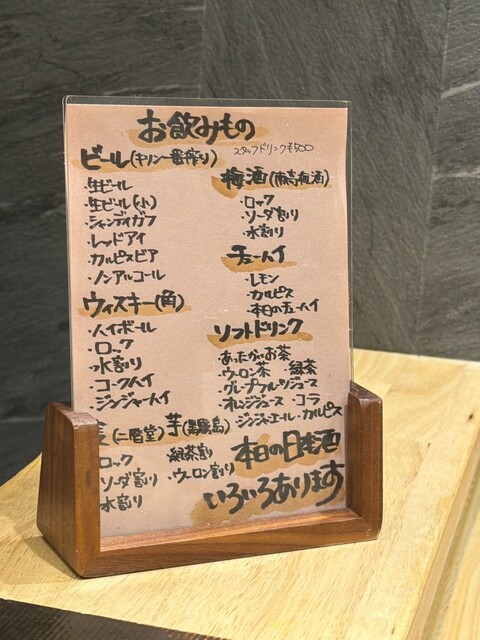 お飲みもの
スタッフドリンク¥500
ビール(キリン一番搾り)
・生ビール
・生ビール(小)
・シャンディガフ
・レッドアイ
・カルピスビア
・ノンアルコール
ウィスキー(角)
・ハイボール
・ロック
・水割り
・コークハイ
・ジンジャーハイ
麦(二階堂)芋(黒霧島)
ロック 緑茶割り
ソーダ割り ・ウーロン割り
水割り
梅酒(南高梅酒)
・ロック
・ソーダ割り
・水割り
チューハイ
・レモン
・カルピス
・本日のチューハイ
ソフトドリンク
・あったかいお茶
・ウーロン茶 ・緑茶
・グレープフルーツジュース
・オレンジジュース・コーラ
・ジンジャーエール・カルピス
本日の日本酒
いろいろあります